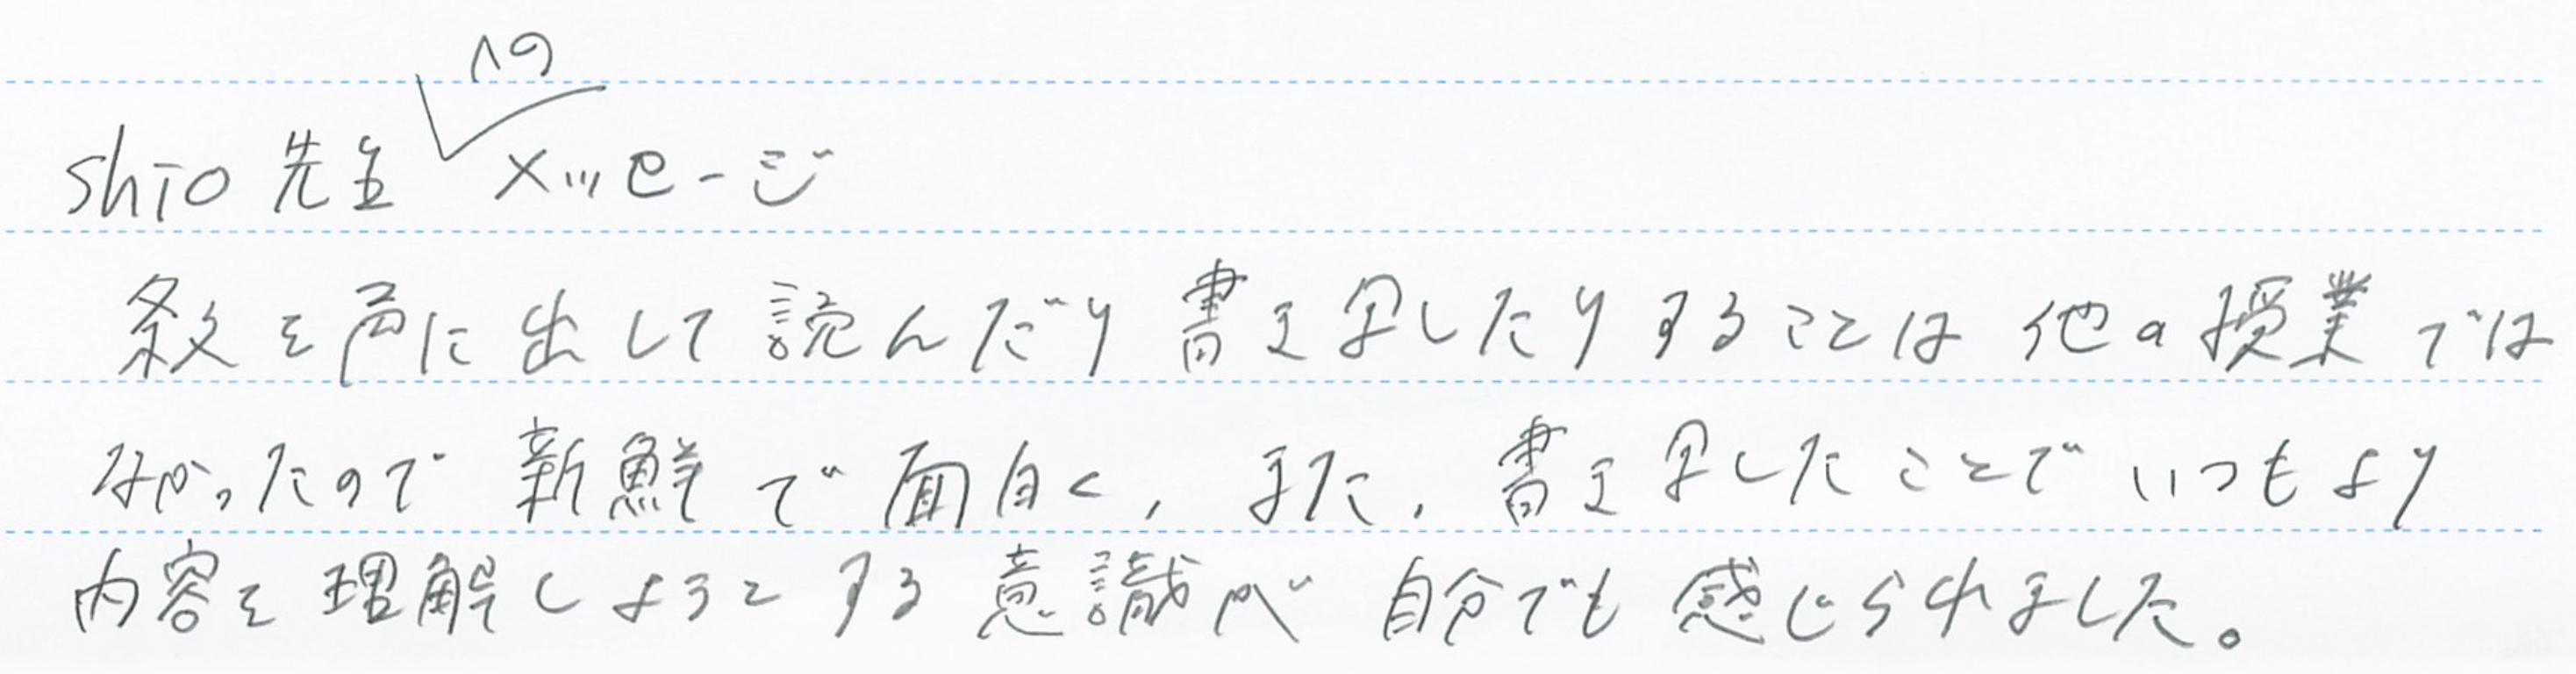 shio先生へのメッセージ
条文を声に出して読んだり書き写したりすることは他の授業では
なかったので新鮮で面白く,また,書き写したことでいつもより
内容を理解しようとする意識が自分でも感じられました。